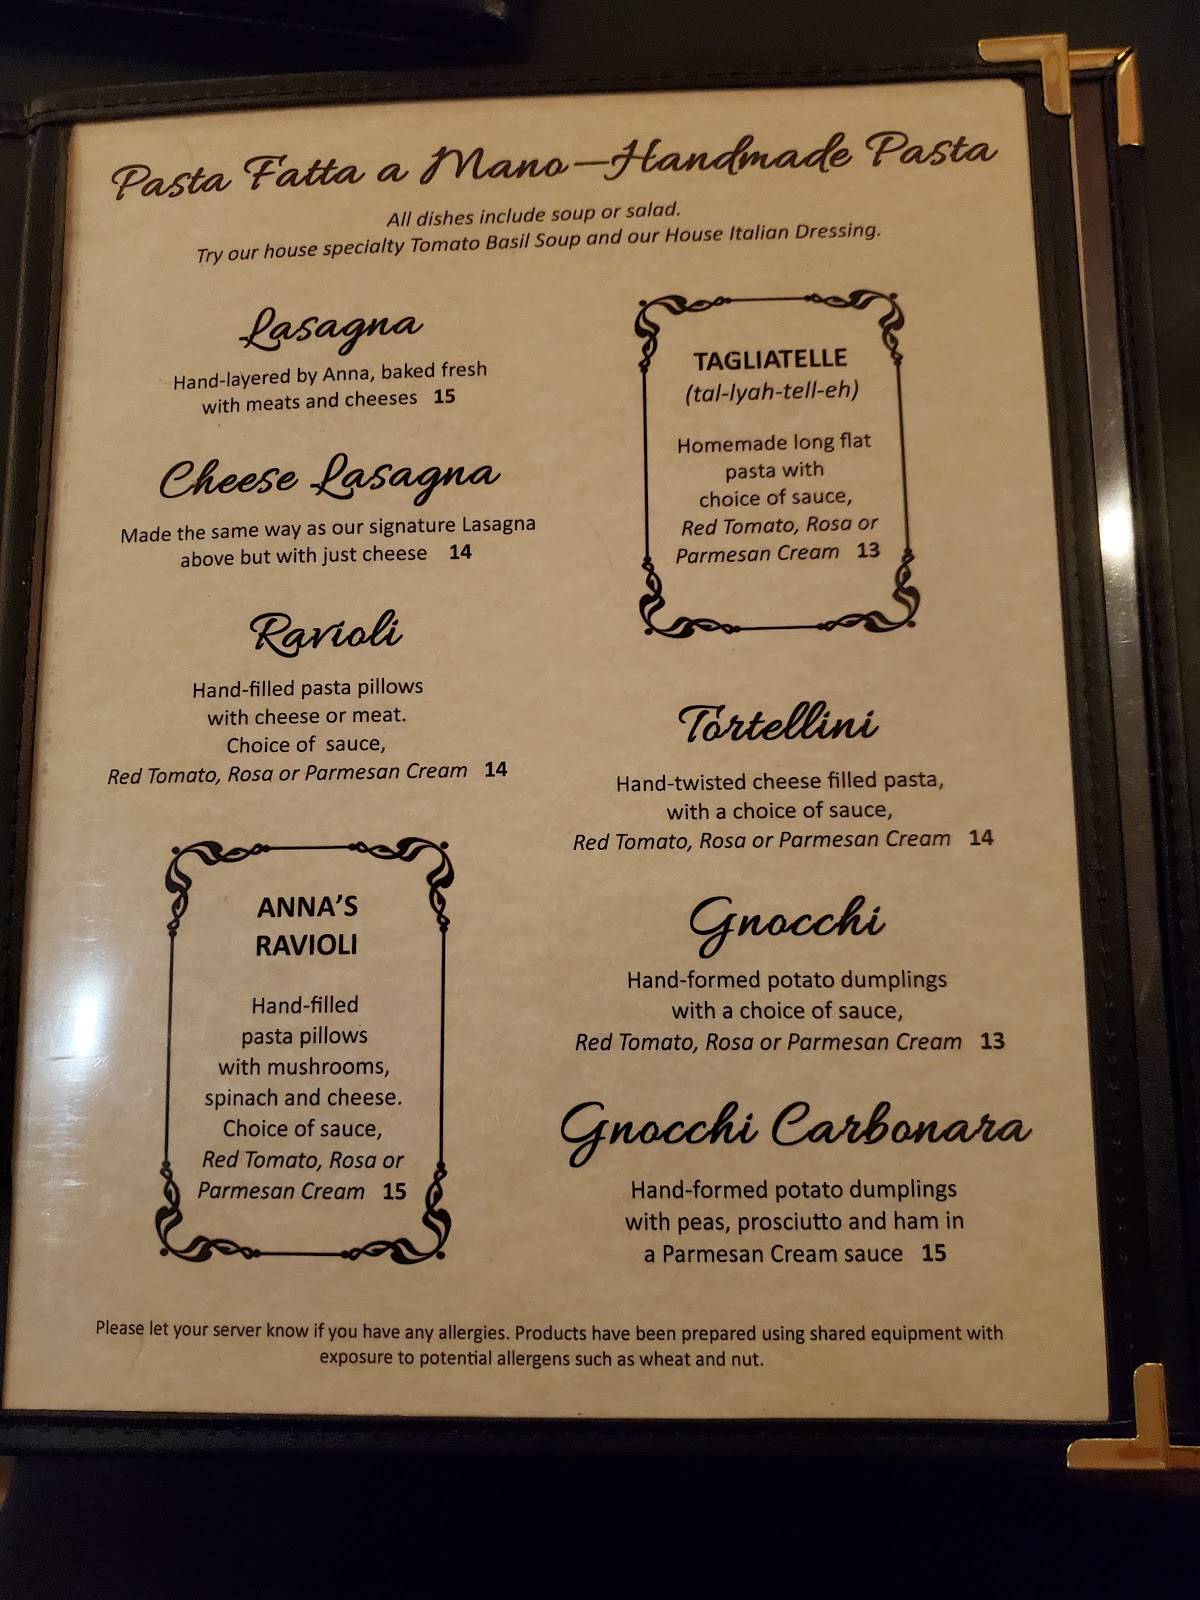 Pasta Fatta a Mano—Handmade Pasta
All dishes include soup or salad.
Try our house specialty Tomato Basil Soup and our House Italian Dressing.
Lasagna
Hand-layered by Anna, baked fresh
with meats and cheeses 15
Cheese Lasagna
Made the same way as our signature Lasagna
above but with just cheese 14
Ravioli
Hand-filled pasta pillows
with cheese or meat.
Choice of sauce,
Red Tomato, Rosa or Parmesan Cream 14
ANNA'S
RAVIOLI
Hand-filled
pasta pillows
with mushrooms,
spinach and cheese.
Choice of sauce,
Red Tomato, Rosa or
Parmesan Cream 15
TAGLIATELLE
(tal-lyah-tell-eh)
Homemade long flat
pasta with
choice of sauce,
Red Tomato, Rosa or
Parmesan Cream 13
Tortellini
Hand-twisted cheese filled pasta,
with a choice of sauce,
Red Tomato, Rosa or Parmesan Cream 14
Gnocchi
Hand-formed potato dumplings
with a choice of sauce,
Red Tomato, Rosa or Parmesan Cream 13
Gnocchi Carbonara
Hand-formed potato dumplings
with peas, prosciutto and ham in
a Parmesan Cream sauce 15
Please let your server know if you have any allergies. Products have been prepared using shared equipment with
exposure to potential allergens such as wheat and nut.